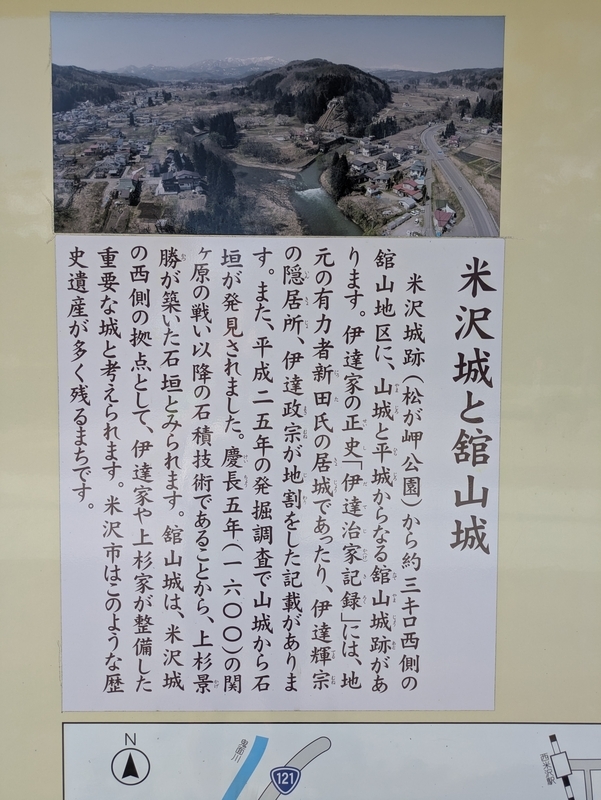 米沢城と舘山城
米沢城跡（松が岬公園）から約三キロ西側の
舘山地区に、山城と平城からなる舘山城跡があ
ります。伊達家の正史「伊達治家記録」には、地
元の有力者新田氏の居城であったり、伊達輝宗
の隠居所、伊達政宗が地割をした記載がありま
す。また、平成二五年の発掘調査で山城から石
垣が発見されました。慶長五年（一六〇〇）の関
ヶ原の戦い以降の石積技術であることから、上杉景
勝が築いた石垣とみられます。舘山城は、米沢城
の西側の拠点として、伊達家や上杉家が整備した
重要な城と考えられます。米沢市はこのような歴
史遺産が多く残るまちです。
N
鬼面川
121
西米沢駅